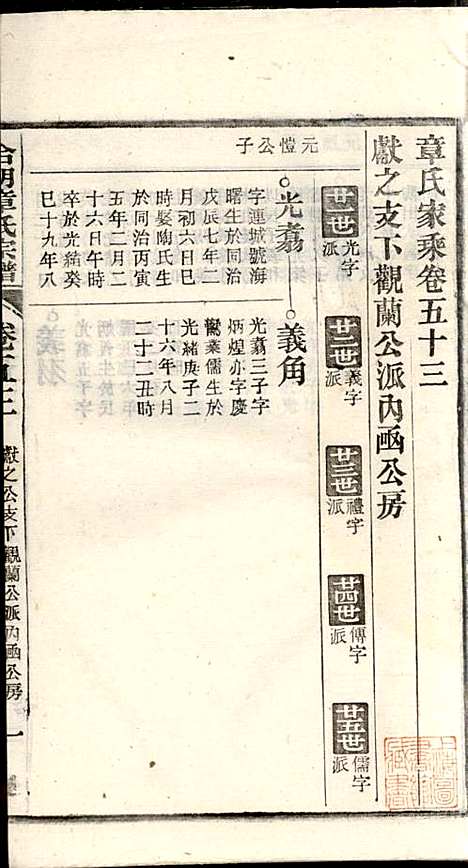 章氏家乘卷五十三
獻之支下觀蘭公派內函公房
廿一世 光字派
廿二世 義字派
廿三世 禮字派
廿四世 傳字派
廿五世 儒字派
元愷公子
光翥
字連城號海
曙生於同治
戊辰七年二
月初六日巳
時娶陶氏生
於同治丙寅
五年二月二
十六日午時
卒於光緒癸
巳十九年八
義角
光翥三子字
炳煌亦字慶
鸞業儒生於
光緒庚子二
十六年八月
二十二丑時
章氏宗譜
卷五十三
獻之公支下觀蘭公派內函公房
一